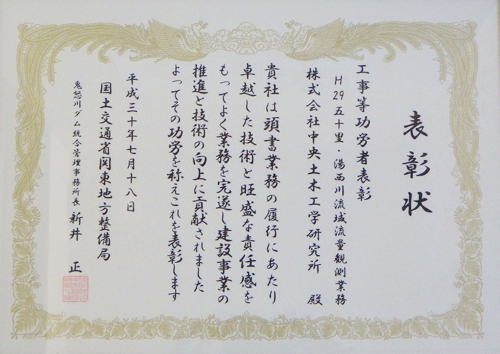 表彰状
工事等功労者表彰
H29五十里・湯西川流域流量観測業務
株式会社中央土木工学研究所 殿
貴社は頭書業務の履行にあたり
卓越した技術と旺盛な責任感を
もってよく業務を完遂し建設事業の
推進と技術の向上に貢献されました
よってその功労を称えこれを表彰します
平成三十年七月十八日
国土交通省関東地方整備局
鬼怒川ダム統合管理事務所長 新井 正